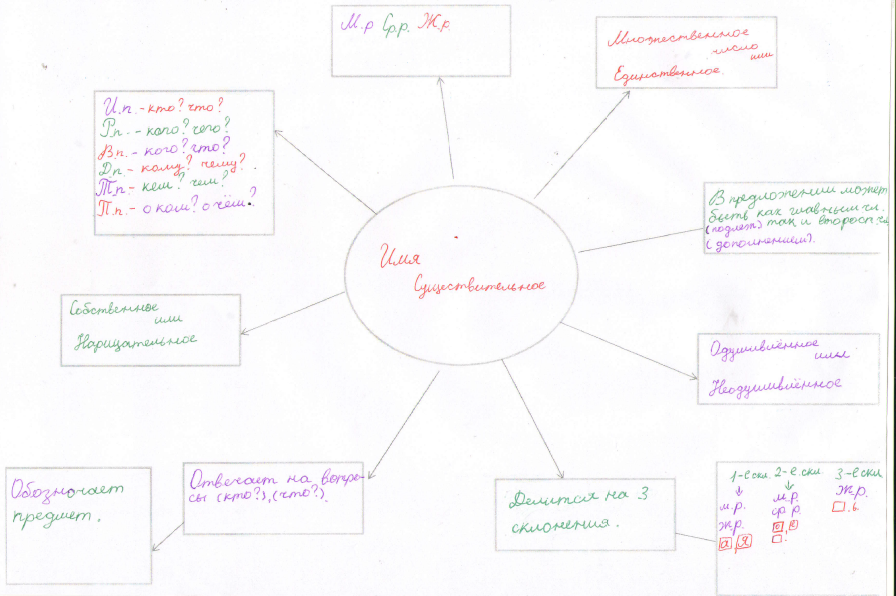 М.р Ср.р. Ж.р.
Множественное
число
или
Единственное.
И.п. - кто? что?
Р.п. - кого? чего?
В.п. - кого? что?
Д.п. - кому? чему?
Т.п. - кем? чем?
П.п. - о ком? о чём?
В предложении может
быть как главным чл.
(подлеж) так и второст. чл
(дополнением).
Имя
Существительное
Собственное
или
Нарицательное
Одушивлённое
или
Неодушивлённое
Отвечает на вопро-
сы (кто?), (что?).
Обозночает
предмет.
Делится на 3
склонения.
1-е скл. 2-е скл 3-е скл
м.р. м.р. ж.р.
ж.р. ср р. ь
а, я о, е